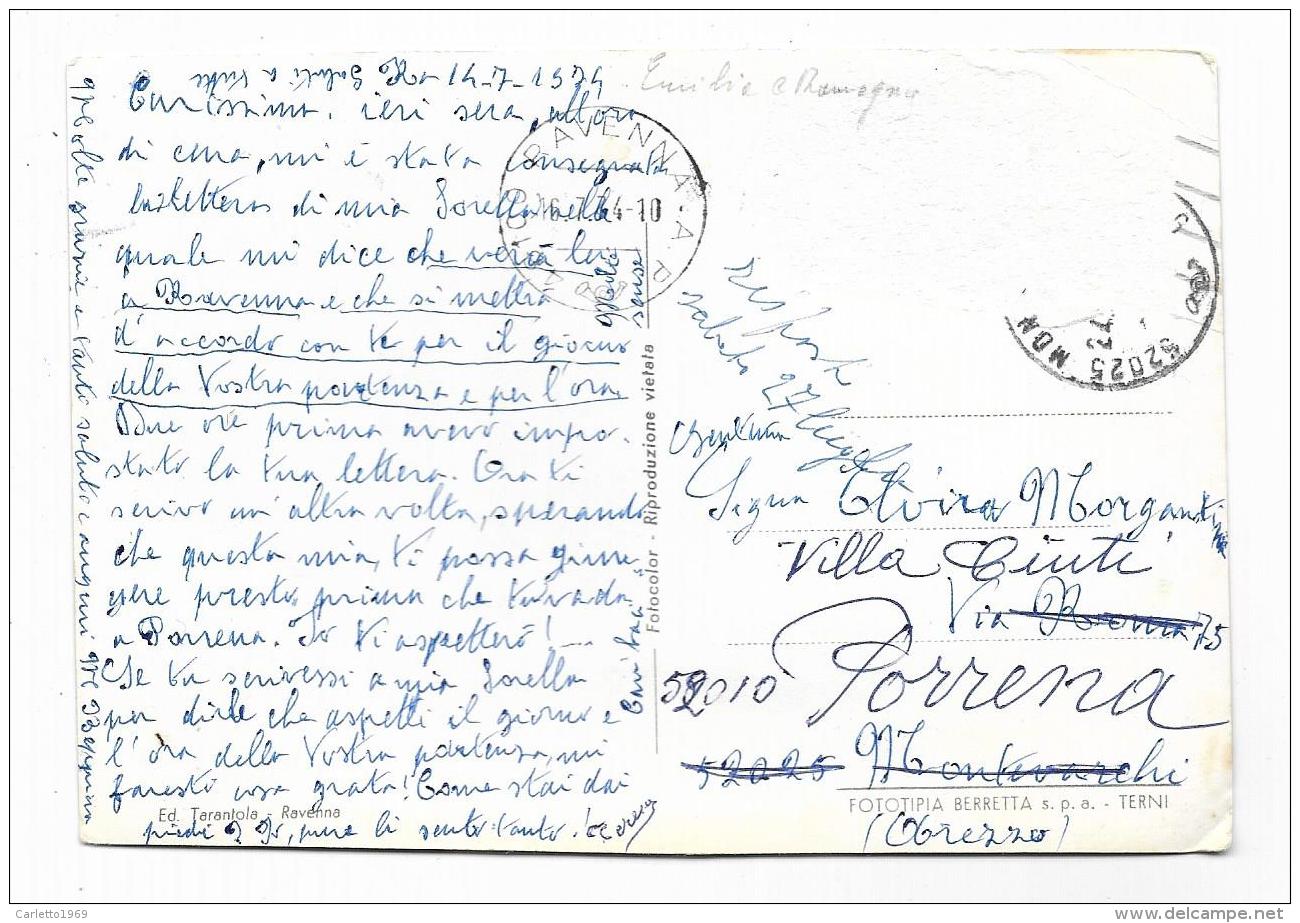 Saluti a tutti Ra 14-7-1974
Carissima, ieri sera, all'ora
di cena, mi è stata consegnata
la lettera di mia Sorella nella
quale mi dice che verrà lei
a Ravenna e che si metterà
d'accordo con te per il giorno
della Vostra partenza e per l'ora.
Due ore prima avevo impo-
stato la tua lettera. Ora ti
scrivo un'altra volta, sperando
che questa mia, ti possa giun-
gere presto, prima che tu vada
a Porrena. Io ti aspetterò!
Se tu scrivessi a mia Sorella
per dirle che aspetti il giorno e
l'ora della Vostra partenza, mi
faresti cosa grata! Come stai dai
piedi? Io, pure li sento tanto!
grazie e tanti saluti e auguri
Peppina
scusa
Emilia e Romagna
RAVENNA A.P.
16.7.74-10
52025 MON
Risposta
sabato 27 luglio
Gentma
Signa Elvira Morgantini
Villa Ciuti
Via Roma 75
52010 Porrena
52025 Montevarchi
(Arezzo)
Fotocolor - Riproduzione vietata
Ed. Tarantola - Ravenna
FOTOTIPIA BERRETTA s.p.a. - TERNI
Carletto1969
www.delcampe.net